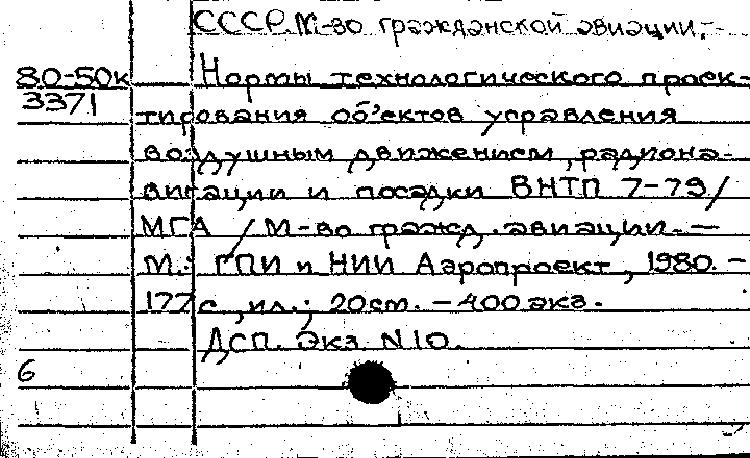 СССР. М-во гражданской авиации.-
80-50к Нормы технологического проек-
3371 тирования об'ектов управления
воздушным движением, радиона-
вигации и посадки ВНТП 7-79/
МГА / М-во гражд. авиации. —
М.: ГПИ и НИИ Аэропроект, 1980. –
177 с., ил.; 20 см. – 400 экз.
ДСП. Экз. N 10.
6